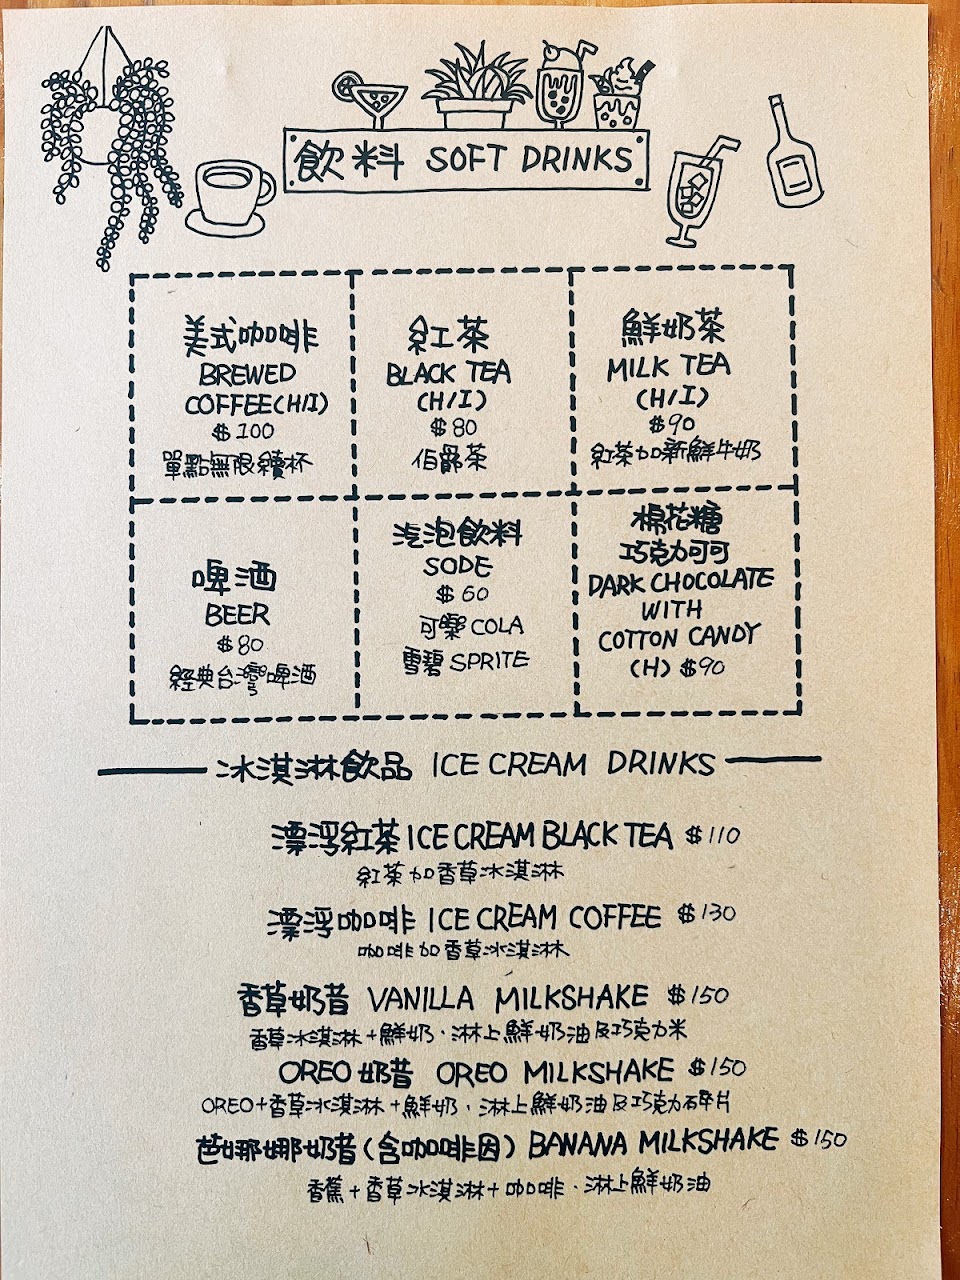 飲料 SOFT DRINKS
美式咖啡
BREWED
COFFEE(H/I)
$100
單點無限續杯
紅茶
BLACK TEA
(H/I)
$80
伯爵茶
鮮奶茶
MILK TEA
(H/I)
$90
紅茶加新鮮牛奶
啤酒
BEER
$80
經典台灣啤酒
汽泡飲料
SODE
$60
可樂 COLA
雪碧 SPRITE
棉花糖
巧克力可可
DARK CHOCOLATE
WITH
COTTON CANDY
(H) $90
冰淇淋飲品 ICE CREAM DRINKS
漂浮紅茶 ICE CREAM BLACK TEA $110
紅茶加香草冰淇淋
漂浮咖啡 ICE CREAM COFFEE $130
咖啡加香草冰淇淋
香草奶昔 VANILLA MILKSHAKE $150
香草冰淇淋+鮮奶.淋上鮮奶油及巧克力米
OREO奶昔 OREO MILKSHAKE $150
OREO+香草冰淇淋+鮮奶.淋上鮮奶油及巧克力碎片
芭娜娜奶昔(含咖啡因) BANANA MILKSHAKE $150
香蕉+香草冰淇淋+咖啡.淋上鮮奶油